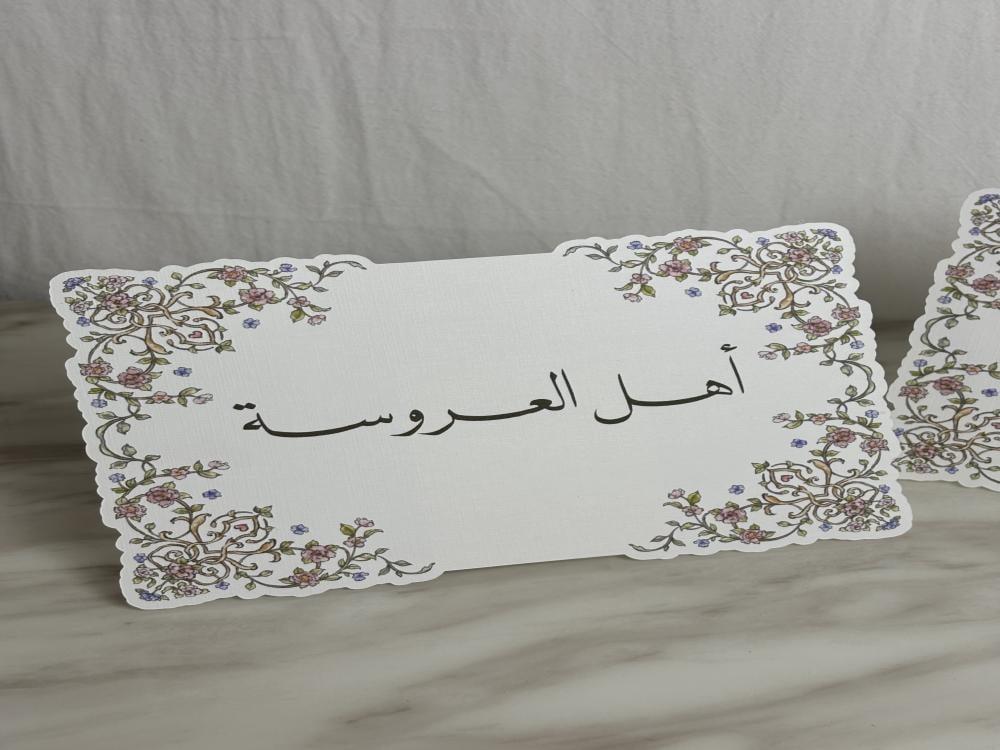 أهل العروسة